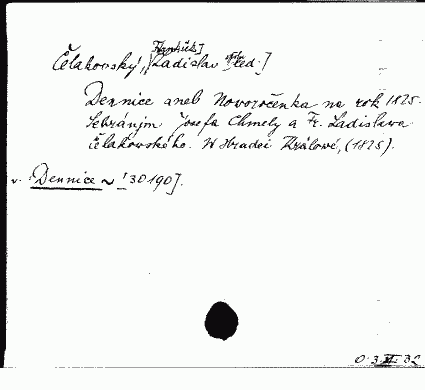 Čelakovský, [František] Ladislav spolu red.]
Dennice aneb Novoročenka na rok 1825.
Sebráním Josefa Chmely a Fr. Ladislava
Čelakovského. W Hradci Králové, (1825).
v. Dennice ~ 130190].